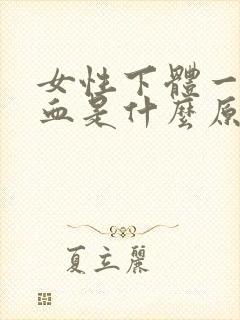 女性下體一
血是什麼原
夏立麗